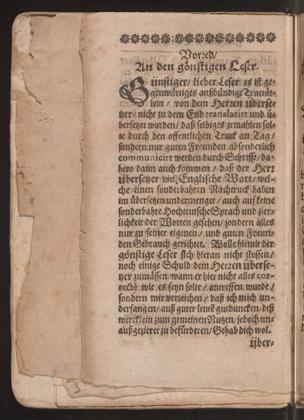 Vorred/
An den gönstigen Leser.
Günstiger/lieber Leser/es ist ge-
genwärtiges außbündige Tractät-
lein/von dem Herren überse-
tzer/nicht zu dem End translatirt und ü-
bersetzet worden/daß selbiges zemahlen sol-
te durch den offentlichen Truck an Tag/
sondern nur guten Freunden absonderlich
communicirt werden durch Schrifft/da-
hero dann auch kommen/daß der Herr
übersetzer viel Englische Wort/wel-
che einen sonderbahren Nachtruck haben
im übersetzen undermenget/auch auf keine
sonderbahre Hochteutsche Sprach und zier-
lichkeit der Worten gesehen/sondern alles
nur zu seiner eigenen/und guten Freun-
den Gebrauch gerichtet. Wolle hiemit der
gönstige Leser sich hieran nicht stossen/
noch einige Schuld dem Herzen überse-
tzer zumässen/wann er hie nicht alles cor-
rectè wie es seyn solte/antreffen wurde/
sondern mir verzeichen/daß ich mich un-
derfangen/auß guter leuten gutduncken/diß
wercklein zum gemeinen Nutzen/jedoch un-
außgezieret zu befürderen/Gehab dich wol.
über-